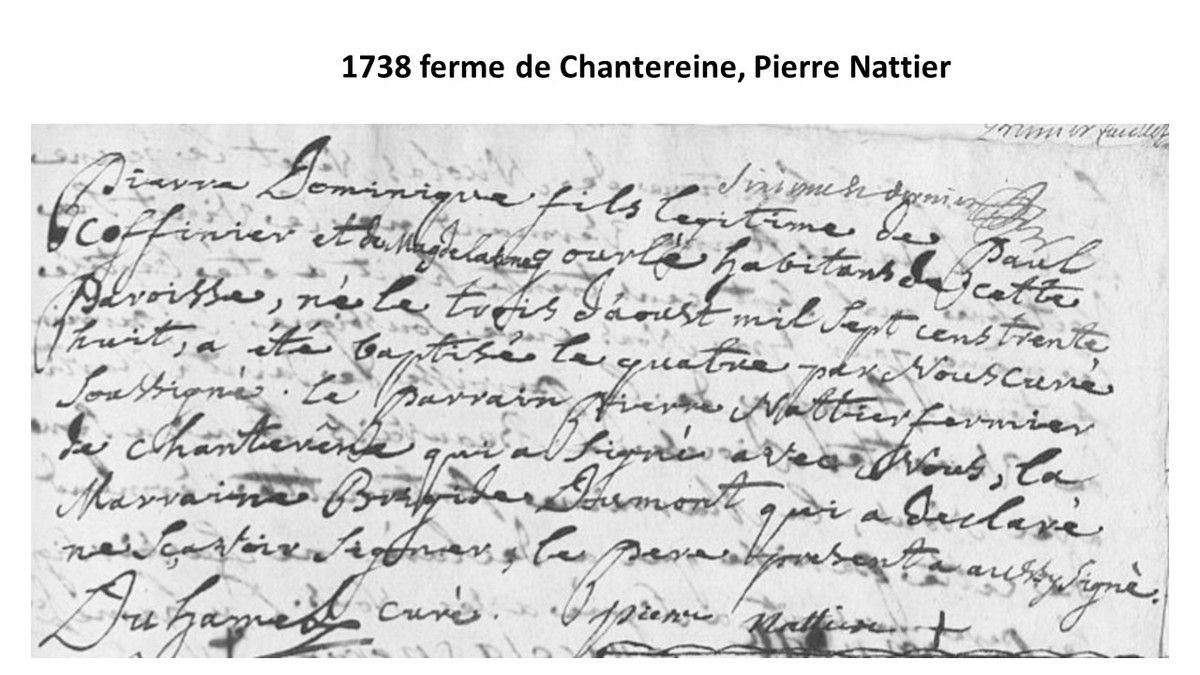 1738 ferme de Chantereine, Pierre Nattier
premier feuillet
Sixieme et dernier
Pierre Dominique fils legitime de Paul
Coffinier et de Magdelaine gourlé habitans de cette
Paroisse, né le trois d'aoust mil Sept cens trente
huit, a été baptisé le quatre par Nous curé
Soussigné. le parrain Pierre Nattier fermier
de Chanterêne qui a Signé avec Nous, la
Marraine Brigide Dumont qui a declaré
ne sçavoir Signer, le pere present a aussy Signé.
Duhamel curé. pierre Nattier